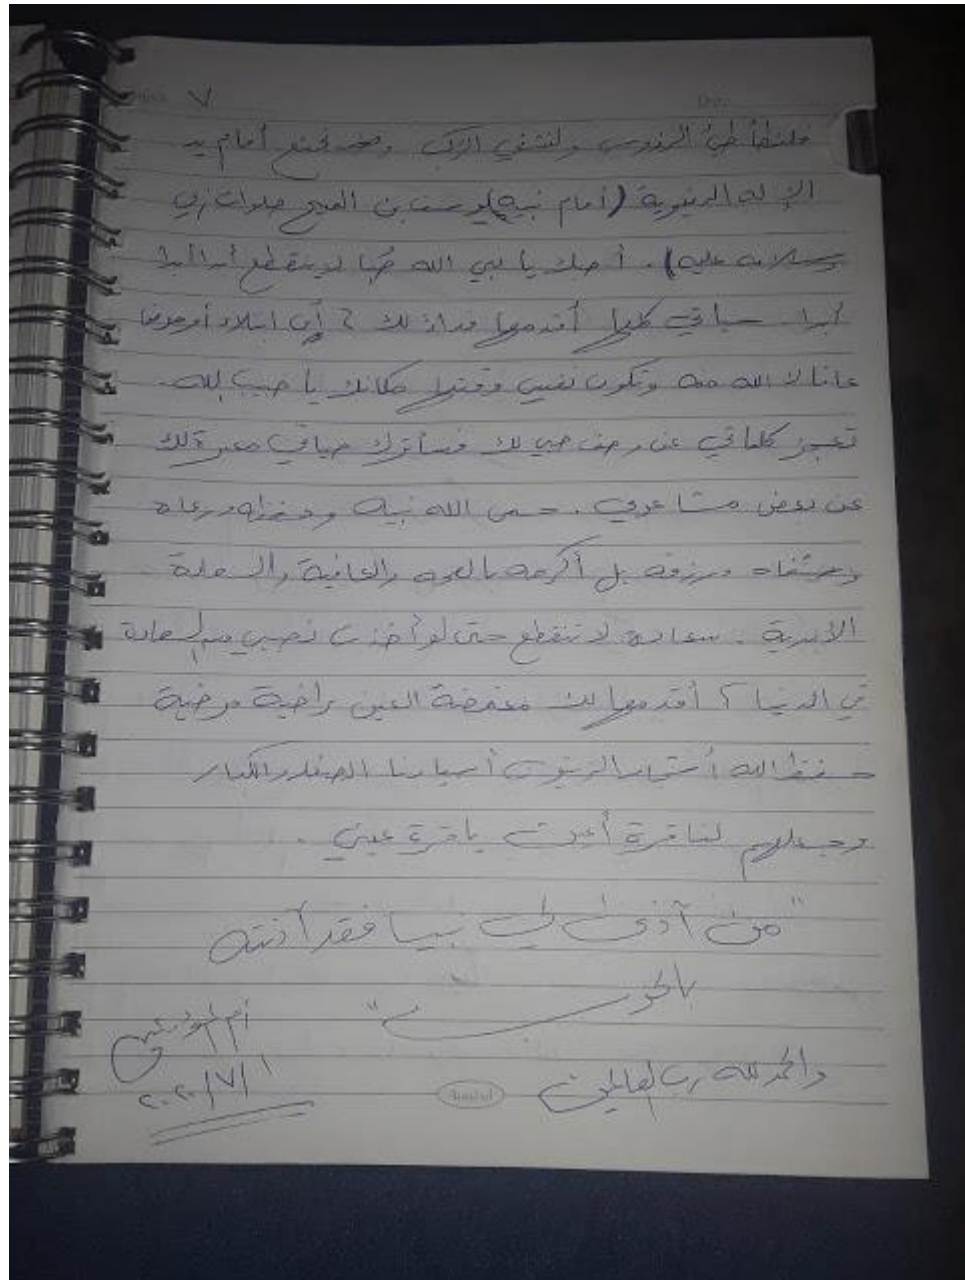 ٧
ولنشفي الركب ونحن نجتمع أمام يد
الإله الدنيوية (أمام نبيه يوسف بن المسيح صلوات ربي
وسلامه عليه). أحبك يا نبي الله حبا لا ينقطع أبدا أبدا
أبدا حياتي كلها أقدمها فداء لك ؟ أي ابتلاء أو
عافاك الله منه وتكون نفسي مكانك يا حبيب الله.
تعجز كلماتي عن وصف حبي لك فسأترك حياتي معبرة لك
عن بعض مشاعري. حمى الله نبيه وحفظه ورعاه
وشفاه ورزقه بل أكرمه بالصحة والعافية والسعادة
الأبدية. سعادة لا تنقطع حتى لو أخذت نصيبي من السعادة
في الدنيا ؟ أقدمها لك مغمضة العين راضية مرضية
حفظ الله أسيادنا الصغار والكبار
وجعلهم لنا قرة أعين يا قرة عيني.
"من آذى لي نبيا فقد آذنته
بالحرب"
والحمد لله رب العالمين
٢٠٢٠/٧/١